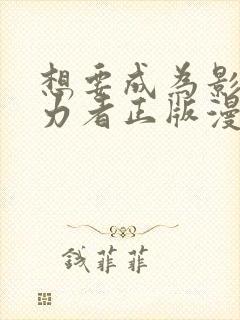 想要成为影
力者正版漫
钱菲菲